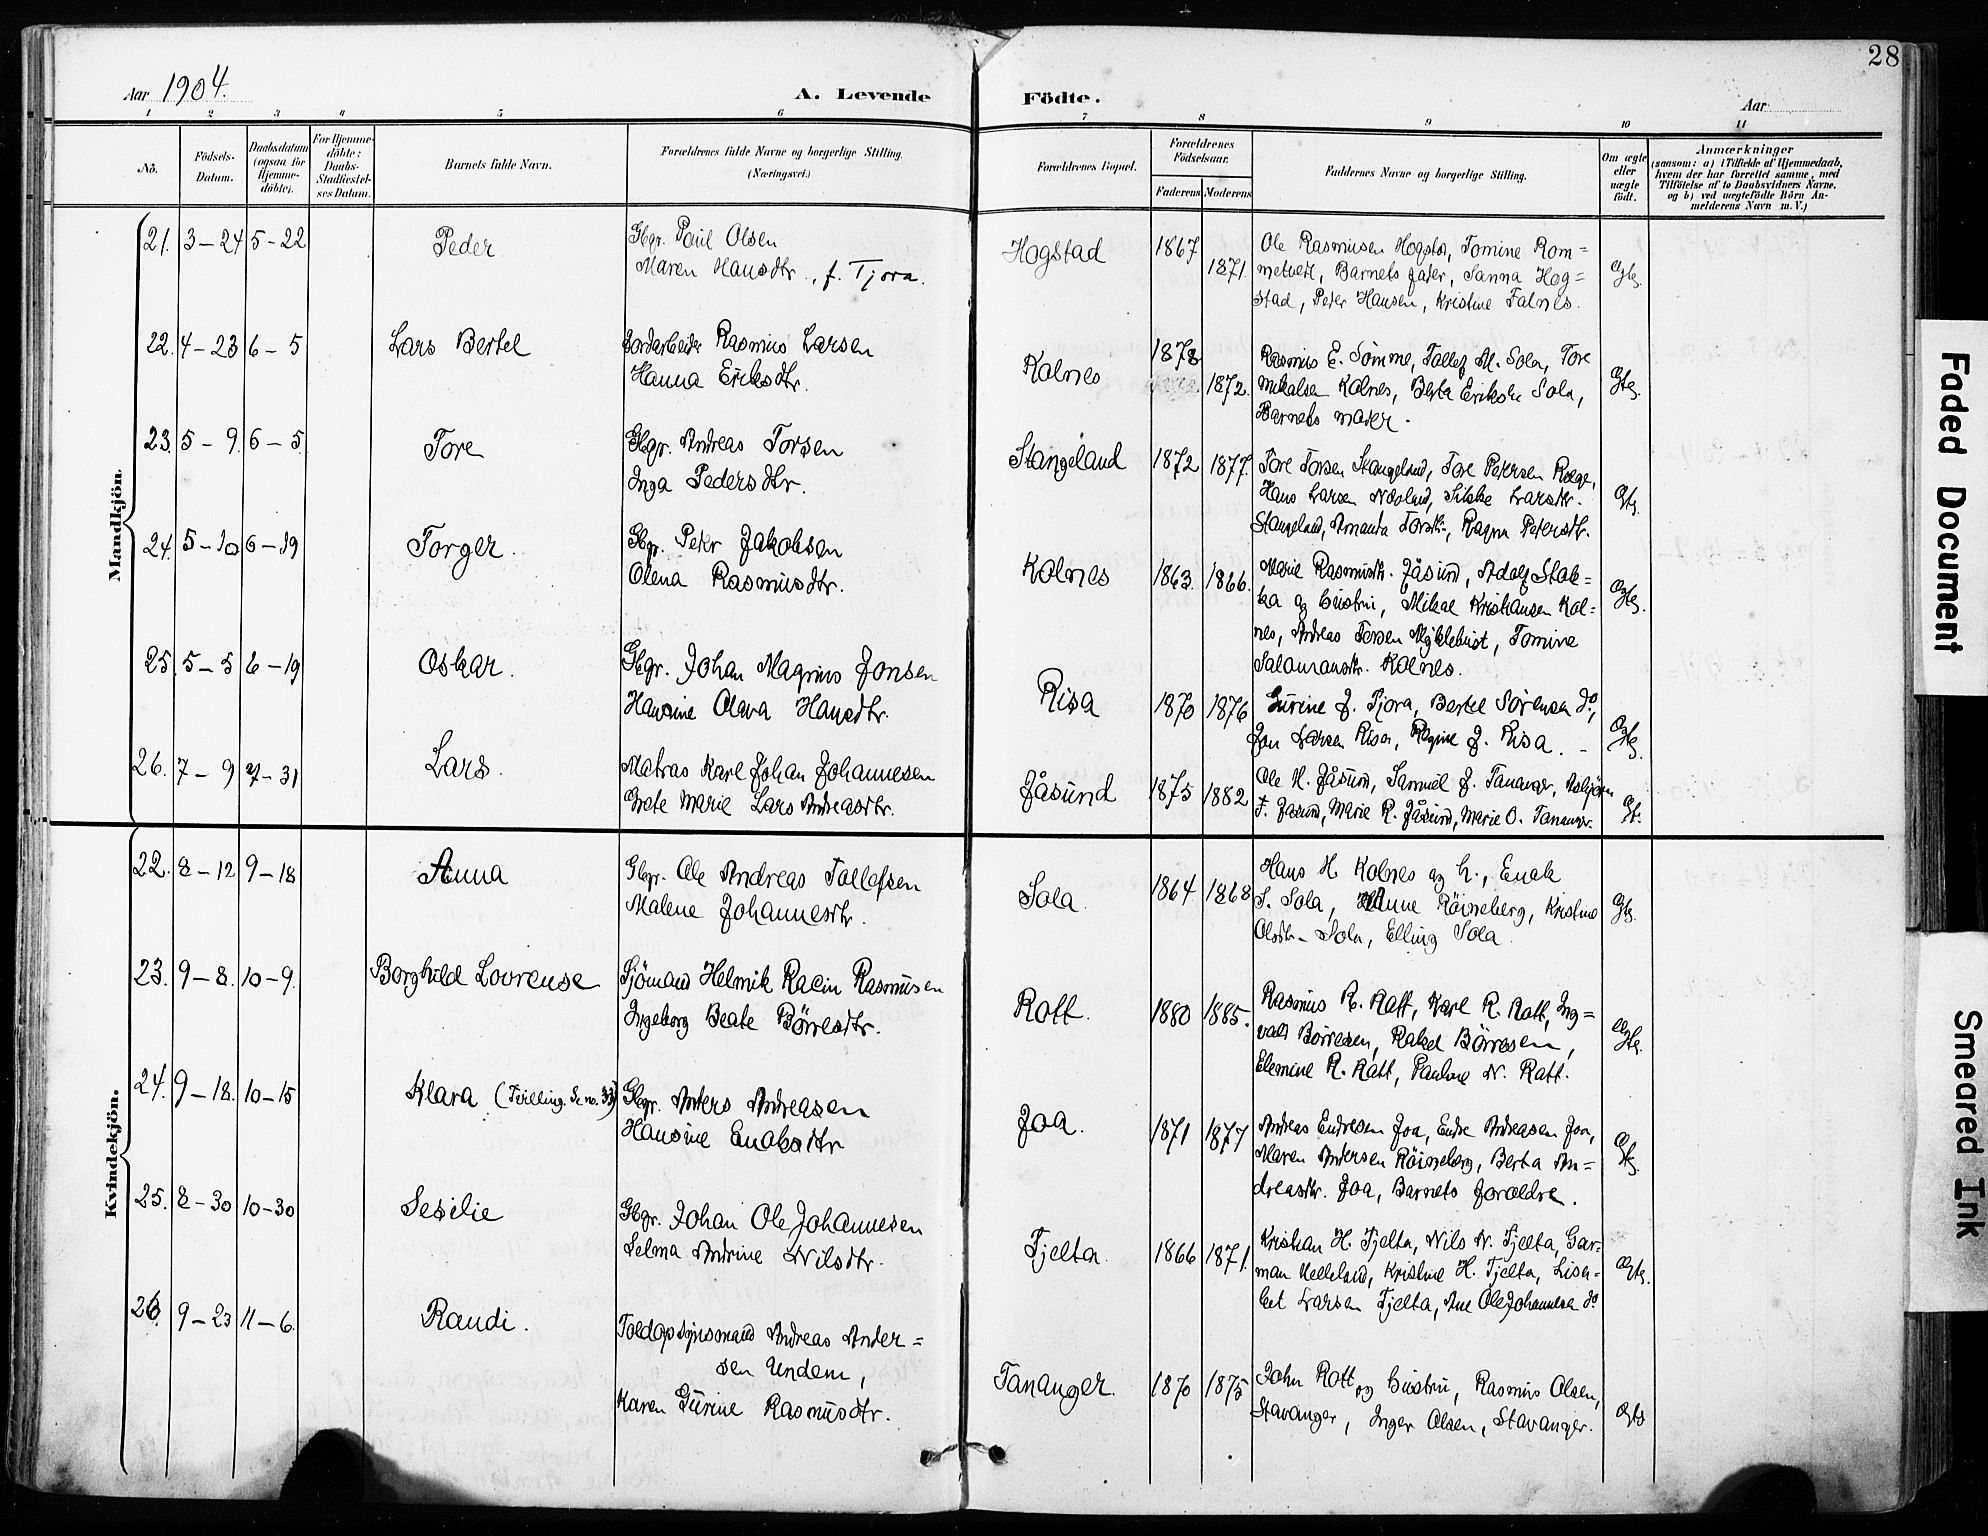 28
Aar 1904.
A. Levende
Födte.
Aar
1 2 3 4 5 6 7 8 9 10 11
No.
Födsels-
Datum.
Daabsdatum
(ogsaa for
Hjemme-
döbte).
For Hjemme-
döbte:
Daabs-
Stadfæstel-
ses Datum.
Barnets fulde Navn.
Forældrenes fulde Navne og borgerlige Stilling.
(Næringsvei.)
Forældrenes Bopæl.
Forældrenes
Födselsaar.
Faderens
Moderens
Faddernes Navne og borgerlige Stilling.
Om ægte
eller
uægte
födt.
Anmærkninger
(saasom: a) i Tilfælde af Hjemmedaab,
hvem der har forrettet samme, med
Tilföielse af to Daabsvidners Navne,
og b) ved uægtefödte Börn An-
melderens Navn m. V.)
Mandkjön.
21. 3-24 5-22 Peder
Gbgr. Paul Olsen
Maren Hansdtr., f. Tjora.
Hogstad 1867 1871
Ole Rasmusen Hogstad, Tomine Rom=
metveit, Barnets fader, Sanna Hog=
stad, Peter Hansen, Kristine Falnes.
Ægte.
22. 4-23 6-5 Lars Bertel
Jordarbeider Rasmus Larsen
Hanna Eriksdtr.
Kolnes 1878 1872.
Rasmus E. Sömme, Tollef M. Sola, Tore
Mikalsen Kolnes, Berta Eriksdtr Sola,
Barnets moder.
Ægte.
23. 5-9 6-5 Tore
Gbgr. Andreas Torsen
Inga Pedersdtr.
Stangeland 1872 1877.
Tore Torsen Stangeland, Tore Petersen Ræge,
Hans Larsen, Silske Larsdtr.
Stangeland, Amanda Torsdtr., Ragna Petersdtr.
Ægte.
24. 5-10 6-19 Torger.
Gbgr. Peter Jakobsen
Olena Rasmusdtr.
Kolnes 1863. 1866.
Marie Rasmusdtr. Jåsund, Adolf Stok=
ka og hustru, Mikal Kristiansen Kol=
nes, Andreas Torsen Myklebust, Tomine
Salamonsdtr. Kolnes.
Ægte.
25. 5-5 6-19 Oskar.
Gbgr. Johan Magnus Jonsen
Hansine Olava Hansdtr.
Risa 1870 1876
Gurine J. Tjora, Bertel Sörensen do,
Jon Larsen Risa, Regine J. Risa. -
Ægte.
26. 7-9 7-31 Lars.
Matros Karl Johan Johannesen
Grete Marie Lars Andreasdtr.
Jåsund 1875 1882
Ole H. Jåsund, Samuel J. Tananger, Asbjörn
T. Jåsund, Marie R. Jåsund, Marie O. Tananger.
Ægte.
Kvindekjön.
22. 8-12 9-18 Anna
Gbgr. Ole Andreas Tollefsen
Malene Johannesdtr.
Sola. 1864 1868
Hans H. Kolnes og h., Enok
S. Sola, Anne Röisneberg, Kristine
Olsdtr. Sola, Elling Sola.
Ægte.
23. 9-8. 10-9. Borghild Lovrense
Sjömand Helmik Racin Rasmusen
Ingeborg Beate Börresdtr.
Rott. 1880 1885.
Rasmus R. Rott, Karl R. Rott, Ing=
vald Börresen, Rakel Börresen,
Elemine R. Rott, Pauline N. Rott.
Ægte.
24. 9-18. 10-15 Klara (Tvilling. Se no. 33)
Gbgr. Anders Andreasen
Hansine Enoksdtr
Joa. 1871 1877
Andreas Endresen Joa, Endre Andreasen Joa,
Maren Andersen Röisneberg, Berta An=
dreasdtr. Joa, Barnets forældre.
Ægte.
25. 8-30 10-30 Sesilie
Gbgr. Johan Ole Johannesen
Selma Andrine Nilsdtr.
Tjelta. 1866 1871.
Kristian H. Tjelta, Nils N. Tjelta, Gar=
man Helleland, Kristine H. Tjelta, Lisa=
bet Larsen Tjelta, Ane Ole Johannesen do
Ægte.
26. 9-23 11-6. Randi.
Toldopsynsmand Andreas Ander=
sen Undem,
Karen Gurine Rasmusdtr.
Tananger. 1870 1875
John Rott og hustru, Rasmus Olsen,
Stavanger, Inger Olsen, Stavanger.
Ægte
Faded Document
Smeared Ink